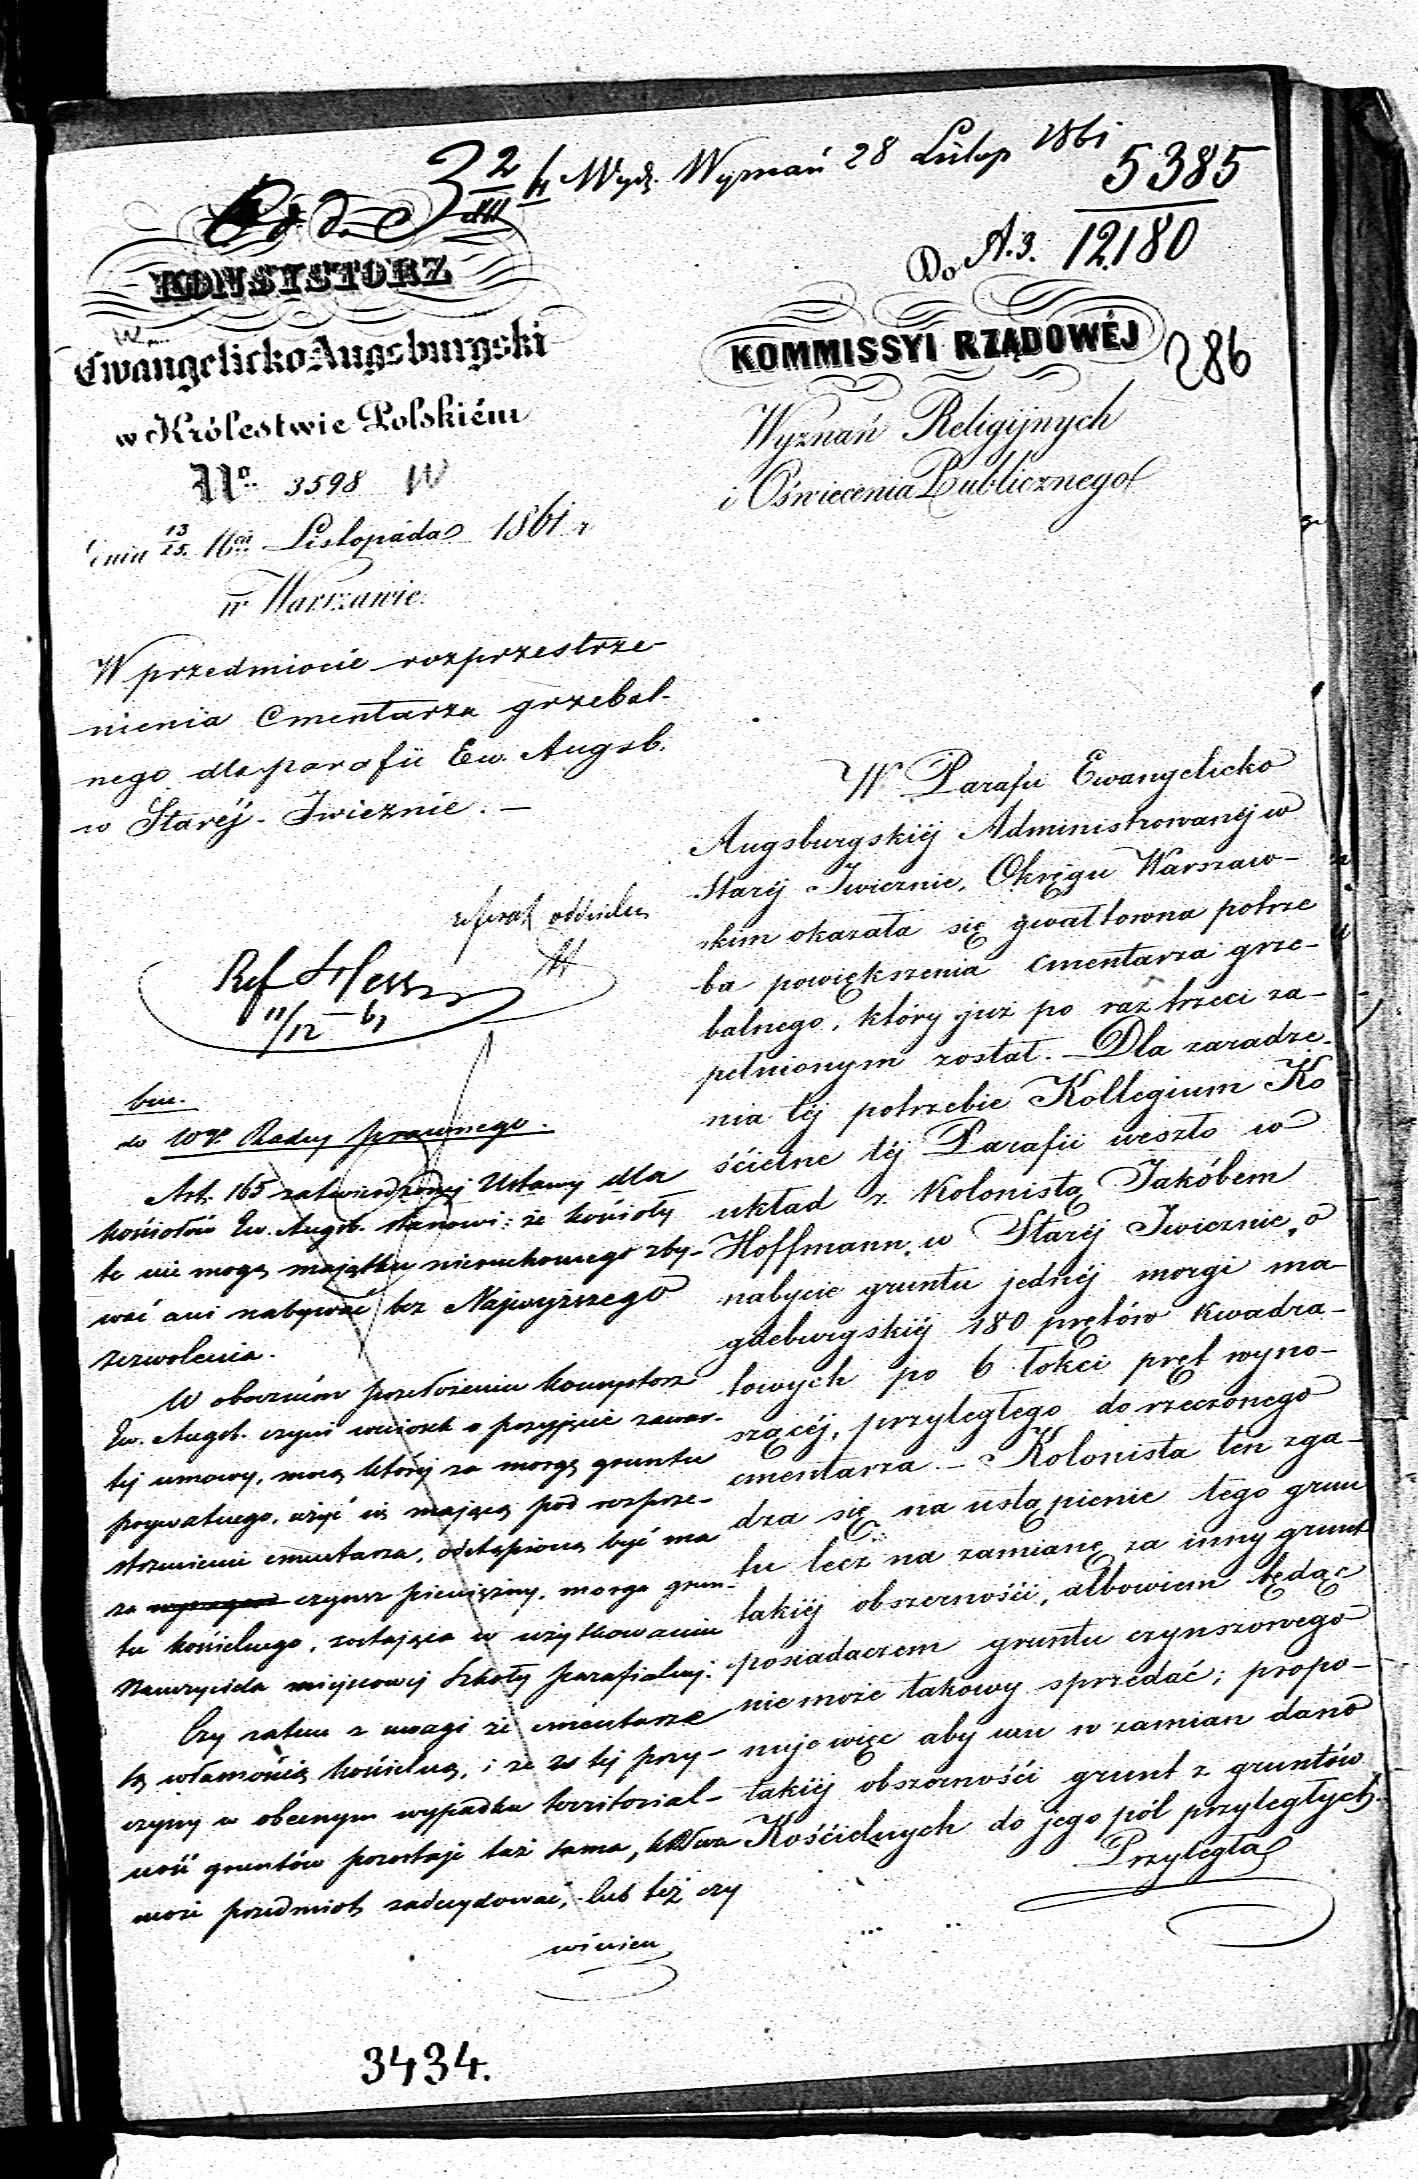 3 2/XII 4 Wydz. Wyznań 28 Listop 1861
5385
Do A.3. 12180
KONSYSTORZ
Ewangelicko-Augsburgski
w Królestwie Polskiém
No. 3598 W
dnia 13/25. Listopada 1861 r
w Warszawie.
W przedmiocie rozprzestrze-
nienia Cmentarza grzebal-
nego dla parafii Ew. Augsb.
w Staréj-Iwicznie. —
referat oddziału
Ref Hess
11/12 — 61
do Wgo Radcy prawnego.
Art. 165 zatwierdzonej Ustawy dla
kościołów Ew. Augsb. stanowi: że kościoły
te nie mogą majątku nieruchomego zby-
wać ani nabywać bez Najwyższego
zezwolenia.
W obecném przełożeniu Konsystorz
Ew. Augsb. czyni wniosek o przyjęcie zawar-
tej umowy, mocą której za morgę gruntu
prywatnego, użyć się mającą pod rozprze-
strzenienie cmentarza, odstąpioną być ma
za czynsz pieniężny, morga grun-
tu kościelnego, zostająca w użytkowaniu
Nauczyciela miejscowej Szkoły parafialnej.
Czy zatem z uwagi że cmentarze
są własnością kościelną, i że z tej przy-
czyny w obecnym wypadku territorial-
ność gruntów pozostaje taż sama,
może przedmiot zadecydować, lub też czy
winien
3434.
KOMMISSYI RZĄDOWÉJ
286
Wyznań Religijnych
i Oświecenia Publicznego
W Parafii Ewangelicko
Augsburgskiéj Administrowanéj w
Staréj Iwicznie, Okręgu Warszaw-
skim okazała się gwałtowna potrze
ba powiększenia cmentarza grze-
balnego, który już po raz trzeci za-
pełnionym został. — Dla zaradze-
nia téj potrzebie Kollegium Ko
ścielne téj Parafii weszło w
układ z Kolonistą Jakóbem
Hoffmann, w Staréj Iwicznie, o
nabycie gruntu jednéj morgi ma-
gdeburgskiéj 180 prętów kwadra-
towych po 6 łokci pręt wyno-
szącéj, przyległego do rzeczonego
cmentarza. — Kolonista ten zga-
dza się na ustąpienie tego grun
tu lecz na zamianę za inny grunt
takiéj obszerności, albowiem będąc
posiadaczem gruntu czynszowego
nie może takowy sprzedać; propo-
nuje więc aby mu w zamian dano
takiéj obszerności grunt z gruntów
Kościelnych do jego pól przyległych.
Przyległa